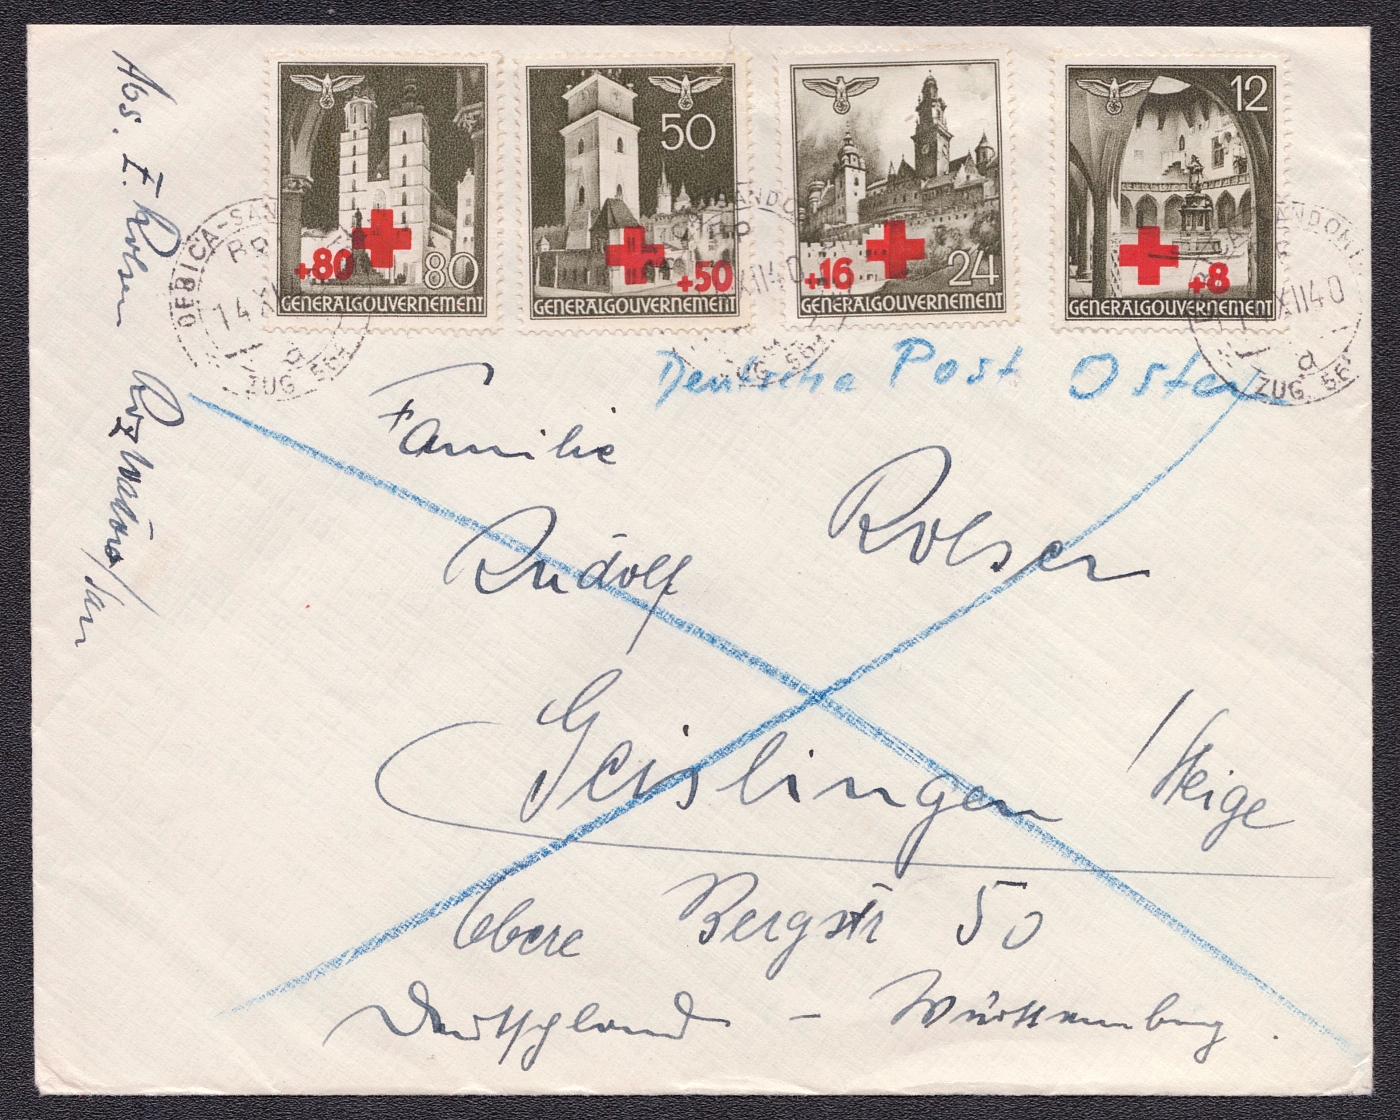 +80 80
GENERALGOUVERNEMENT
50 +50
GENERALGOUVERNEMENT
+16 24
GENERALGOUVERNEMENT
12
+8
GENERALGOUVERNEMENT
DEBICA-SAN
14 XI
a
ZUG 561
ANDO
XII40
ZUG 561
ANDOM
XII40
a
ZUG 561
Deutsche Post Osten
Familie
Rudolf Rolser
Geislingen /Steige
Obere Bergstr 50
Deutschland - Württemberg.
Abs. E. Rolser Rozwadow/San